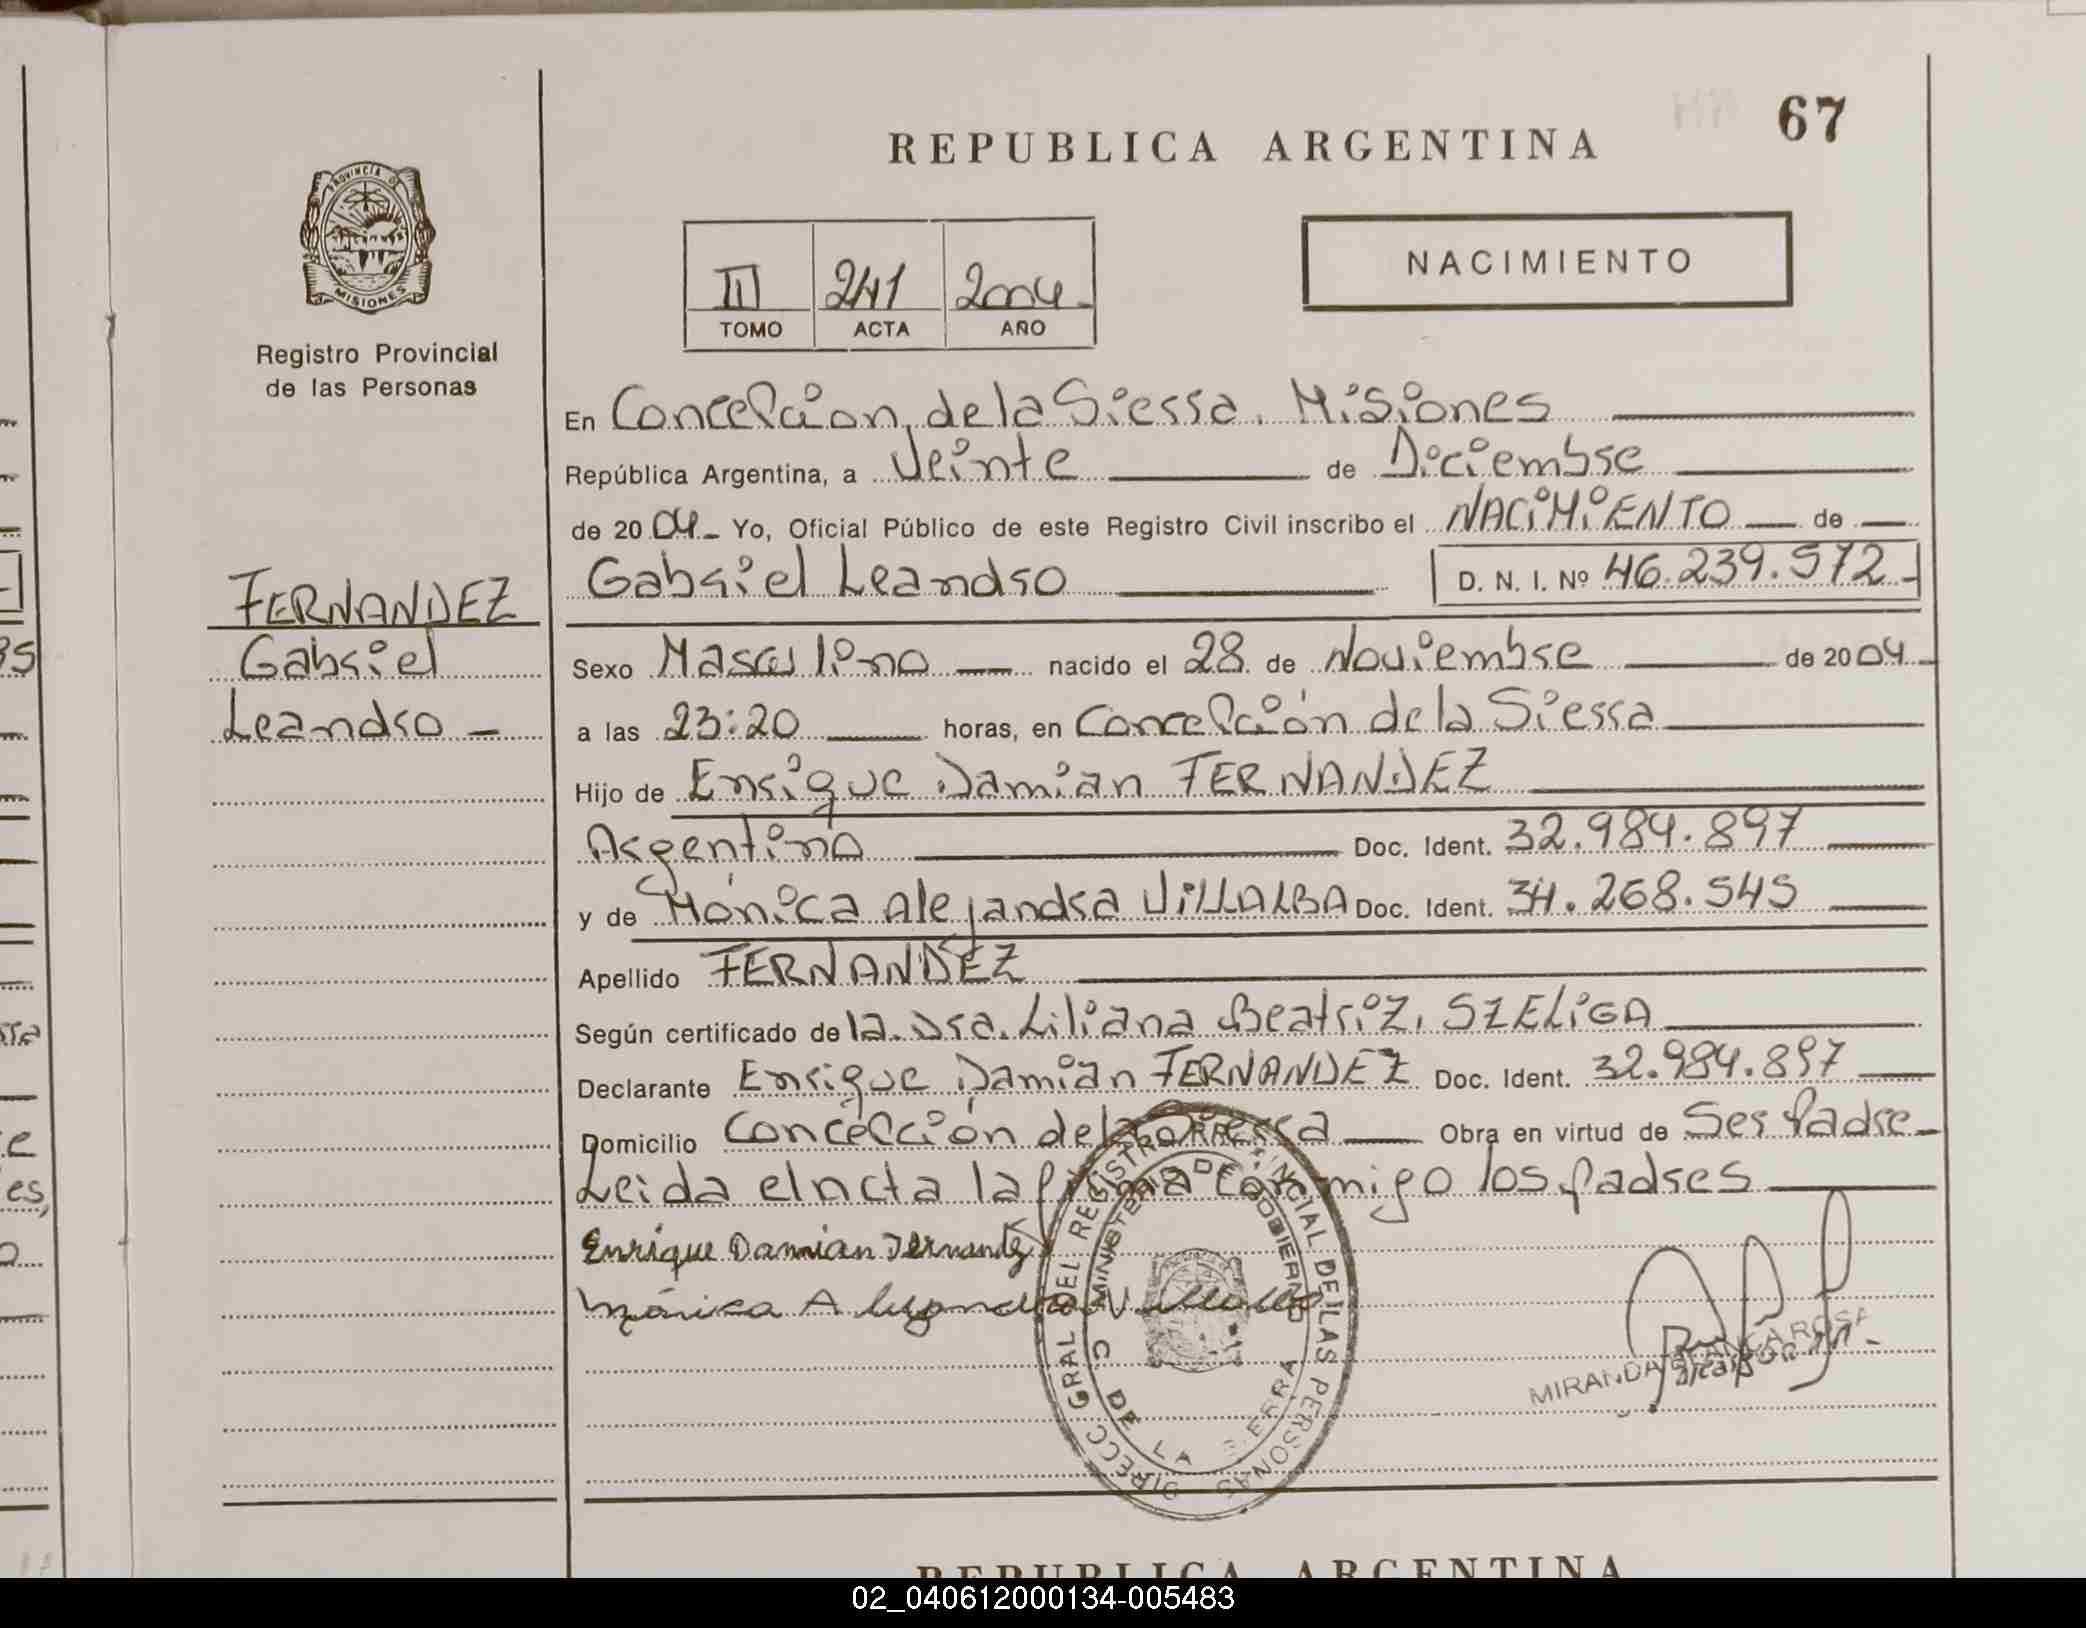 67
REPUBLICA ARGENTINA
PROVINCIA DE
MISIONES
Registro Provincial
de las Personas
III 241 2004
TOMO ACTA AÑO
NACIMIENTO
En Concepcion de la Sierra. Misiones
República Argentina, a Veinte de Diciembre
de 2004 Yo, Oficial Público de este Registro Civil inscribo el NACIMIENTO de
Gabriel Leandro D. N. I. Nº 46.239.572
FERNANDEZ
Gabriel
Leandro
Sexo Masculino nacido el 28 de Noviembre de 2004
a las 23:20 horas, en Concepción de la Sierra
Hijo de Enrique Damian FERNANDEZ
Argentino Doc. Ident. 32.984.897
y de Mónica Alejandra VILLALBA Doc. Ident. 34.268.545
Apellido FERNANDEZ
Según certificado de la Dra. Liliana Beatriz, SZELIGA
Declarante Enrique Damián FERNANDEZ Doc. Ident. 32.984.897
Domicilio Concepción de la Sierra Obra en virtud de Ser Padre
Leida el Acta la firma conmigo los padres
Enrique Damian Fernandez
Mónica Alejandra Villalba
DIRECC GRAL DEL REGISTRO PROVINCIAL DE LAS PERSONAS
MINISTERIO DE GOBIERNO
C DE LA SIERRA
MIRANDA BLANCA ROSA
REPUBLICA ARGENTINA
02_040612000134-005483